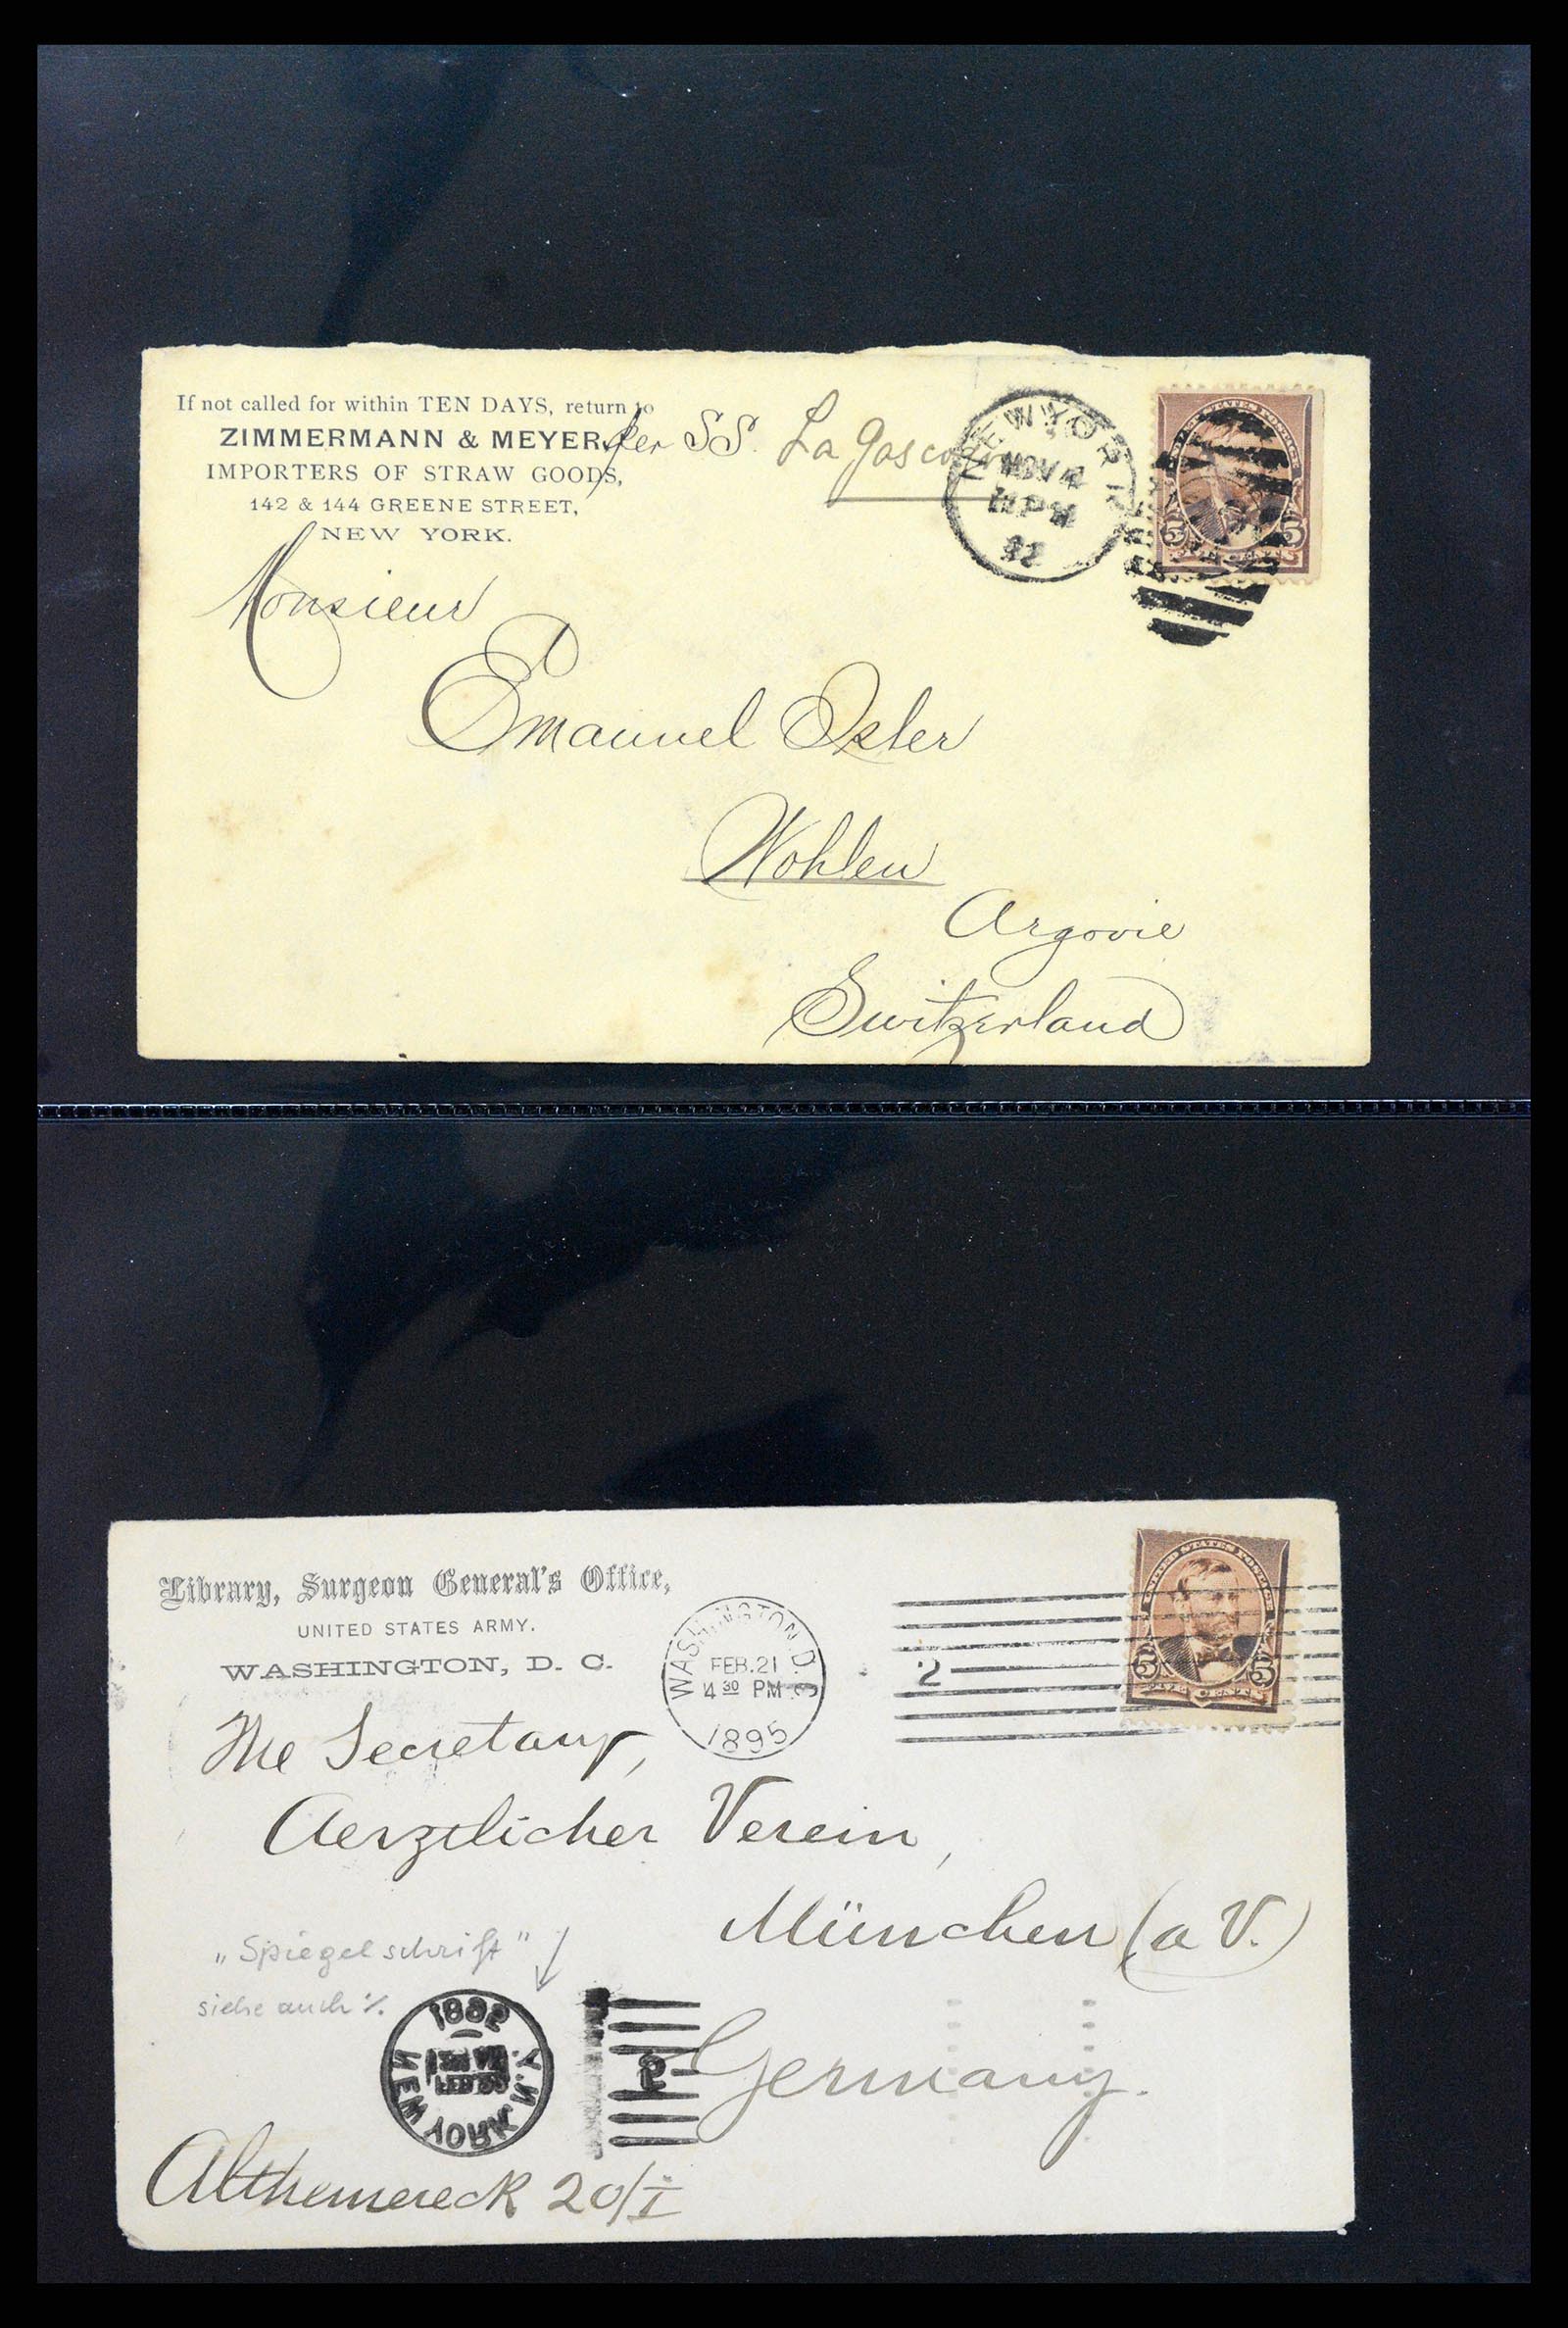 If not called for within TEN DAYS, return to
ZIMMERMANN & MEYER,
IMPORTERS OF STRAW GOODS,
142 & 144 GREENE STREET,
NEW YORK.
per SS. La Gascogne
NEW YORK
NOV 4
92
UNITED STATES POSTAGE
5 5
Monsieur
Emanuel Isler
Wohlen
Argovie
Switzerland
Library, Surgeon General's Office,
UNITED STATES ARMY.
WASHINGTON, D. C.
WASHINGTON, D.C.
FEB. 21
4 30 PM
1895
2
UNITED STATES POSTAGE
5 5
FIVE CENTS
The Secretary,
Aerztlicher Verein,
München (a V.)
Germany.
„Spiegelschrift"
siehe auch %.
NEW YORK N.Y.
2
20/I